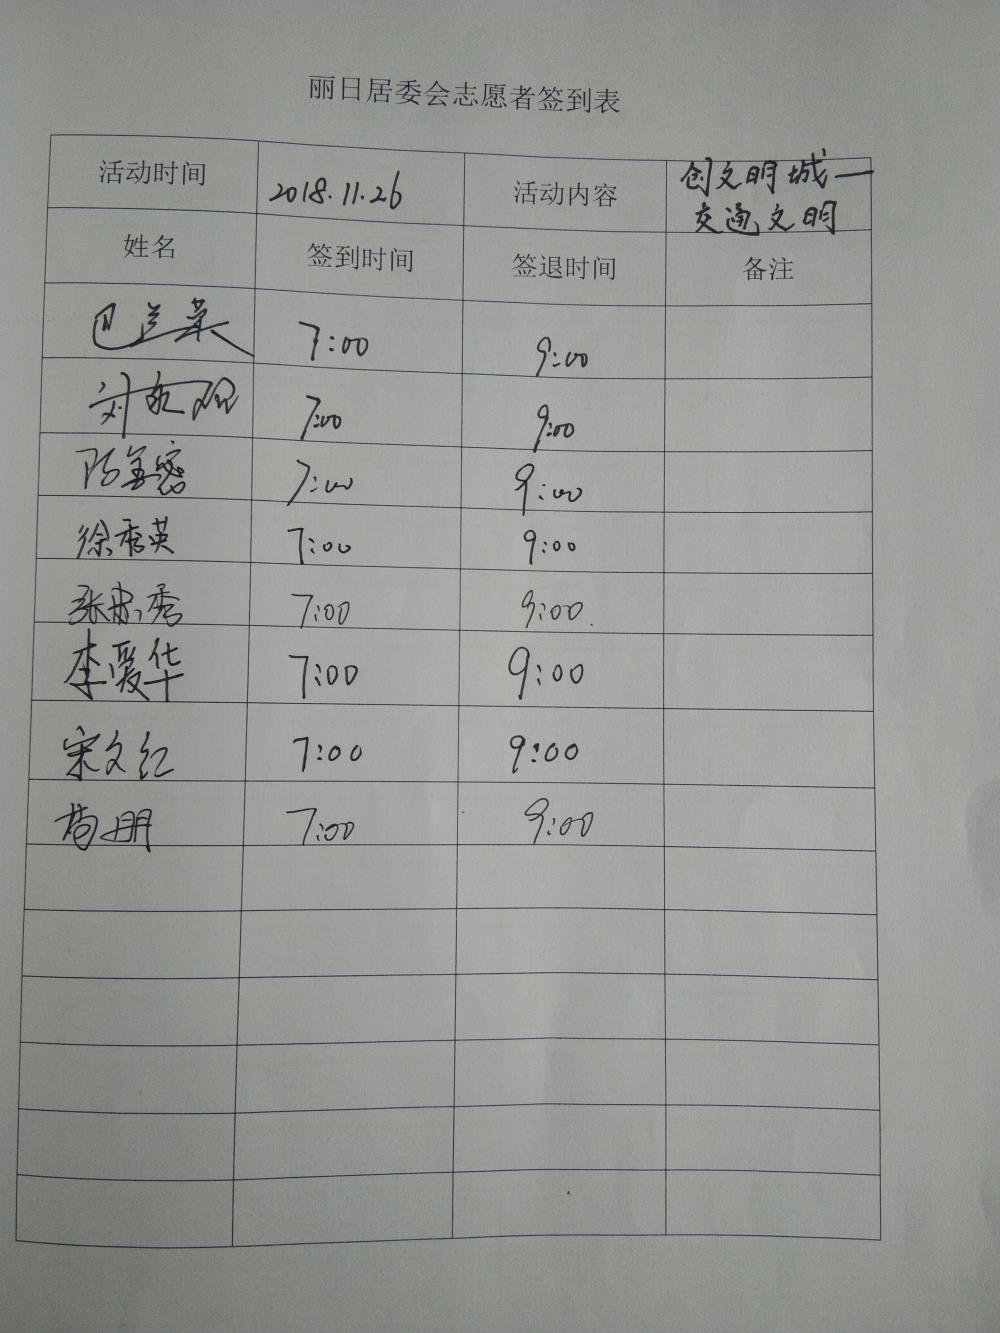 丽日居委会志愿者签到表
活动时间 2018.11.26 活动内容 创文明城—
交通文明
姓名 签到时间 签退时间 备注
7:00 9:00
刘 7:00 9:00
7:00 9:00
徐秀英 7:00 9:00
张 秀 7:00 9:00
李爱华 7:00 9:00
宋文红 7:00 9:00
朋 7:00 9:00